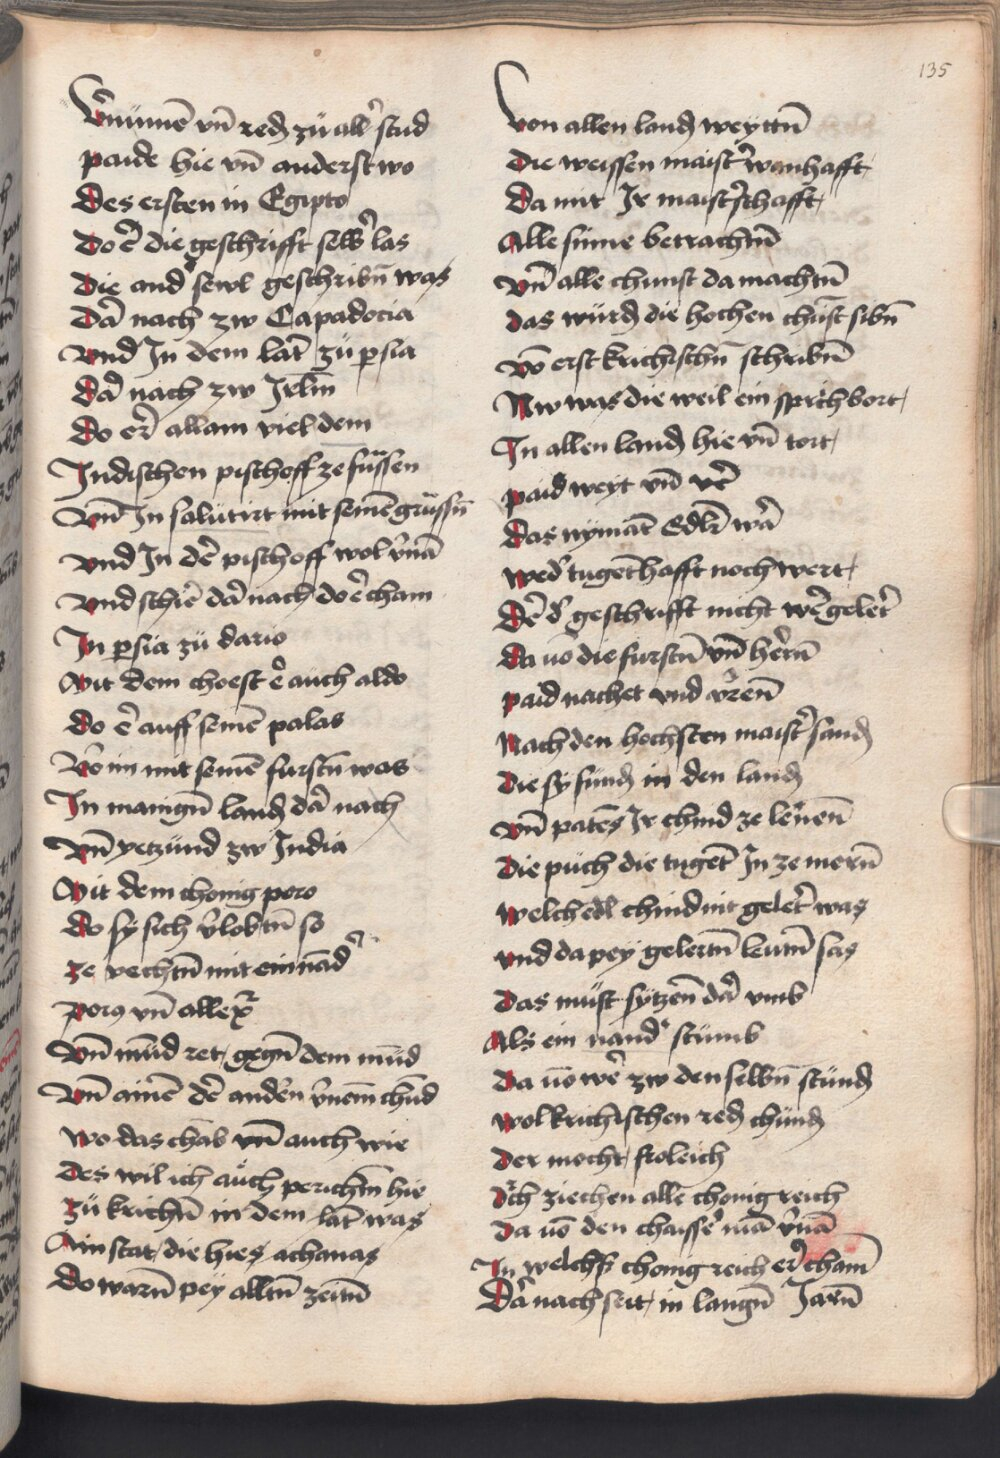 135
Vernumē vn̄ red zü all' stund
paide hie vn̄ anderstwo
Des ersten in Egipto
Do er die geschrifft selb' las
Die and' sewl geschribn̄ was
Dar nach zw Capadocia
Vnd Jn dem lant zü persia
Dar nach zw Jerlm̄
Do er allain viel dem
Jndischen pischoff ze füssen
Vnd Jn salutirt mit seinē grüssn̄
Vnd Jn der pischoff wol v'nam
Vnd schier dar nach do er cham
Jn persia zü dario
Mit dem choest er auch aldo
Do er auff seinē palas
Vō im mit seinē furstn̄ was
Jn manign̄ land dar nach
Vn̄ yetzund zw Jndia
Mit dem chonig poro
Do sy sich v'lobtn̄ so
ze vechtn̄ mit einand'
porus vn̄ allex'
Vn̄ mūd ret gegn̄ dem mūd
Vn̄ ainē der andern v'nem chūd
Wo das cham vn̄ auch wie
Des wil ich auch perichtn̄ hie
Zü krichn̄ in dem lāt was
Ain stat die hies achanas
Do warn̄ pey alltn̄ zeitn̄
Von allen land weyttn̄
Die weissen maist' wanhafft
Da mit Jr maist'schafft
Alle sinne betrachtn̄
Vn̄ alle chunst da machtn̄
Das würd die hochen chūst sibn̄
Vō erst krichischn̄ schribn̄
Nw was die weil ein sprichbort
Jn allen land hie vn̄ tort
paid weyt vn̄ verr
Das nyman̄t Edler wār
Wed' tugenthafft noch wert
Der d' geschrifft nicht wer gelert
Da vō die furstn̄ vn̄ hern̄
paid nachet vnd v'ren̄
Nach den hochsten maist' sand
Die sy fund in den land
Vn̄ patēs Jr chind ze lernen̄
Die püch die tugēt Jn ze mern̄
Welch edl chind nit gelert was
Vnd da pey gelertn̄ leutn̄ sas
Das müst sytzen̄ dar vmb
Als ein nand' stumb
Da vō wer zw den selbn̄ stund
Wol krichischen red chund
Der mocht froleich
Durch ziechen alle chonigreich
Da vō den chaisser man v'nam
Jn welchs chonigreich er cham
Dar nach seit in langn̄ Jarn̄